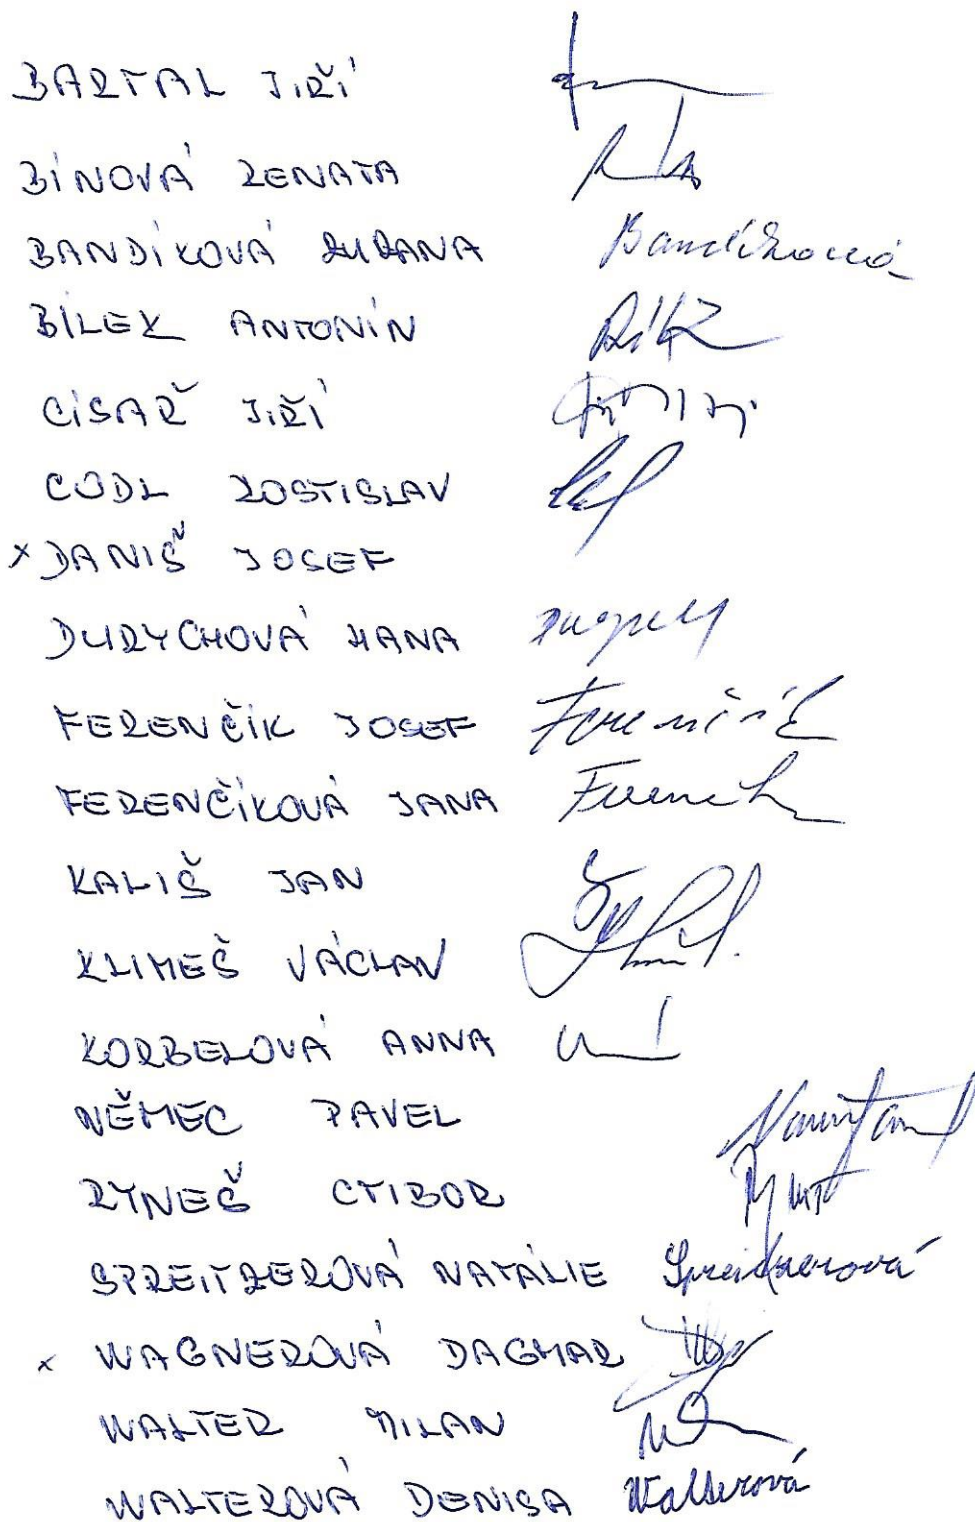 BARTAL JIŘÍ
BÍNOVÁ RENATA
BANDÍKOVÁ ZUZANA Bandíková
BÍLEK ANTONÍN
CÍSAŘ JIŘÍ
CODL ROSTISLAV
x DANIŠ JOSEF
DURYCHOVÁ HANA
FERENČÍK JOSEF Ferenčík
FERENČÍKOVÁ JANA
KALIŠ JAN
KLIMEŠ VÁCLAV
KORBELOVÁ ANNA
NĚMEC PAVEL
RYNEŠ CTIBOR
SPREITZEROVÁ NATÁLIE Spreitzerová
x WAGNEROVÁ DAGMAR
WALTER MILAN
WALTEROVÁ DENISA Walterová